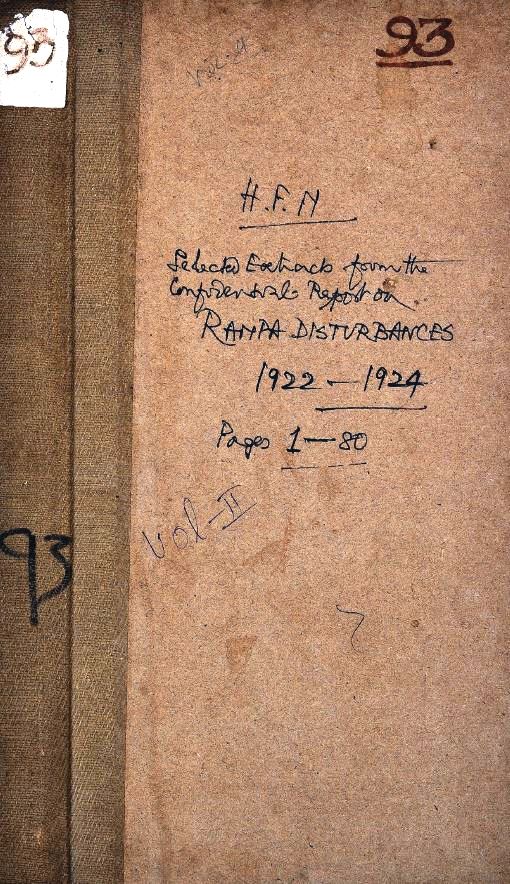 93
93
Vol-II
H.F.M
Selected Extracts from the
Confidential Report on
RAMPA DISTURBANCES
1922 — 1924
Pages 1—80
Vol-II
93